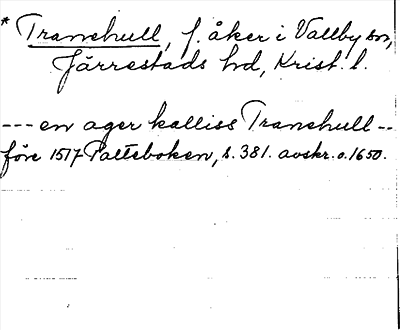 * Tranehull, f. åker i Vallby sn,
Järrestads hd, Krist. l.
--- en ager kalliss Tranehull --
före 1517 Palteboken, s. 381. avskr. o. 1650.